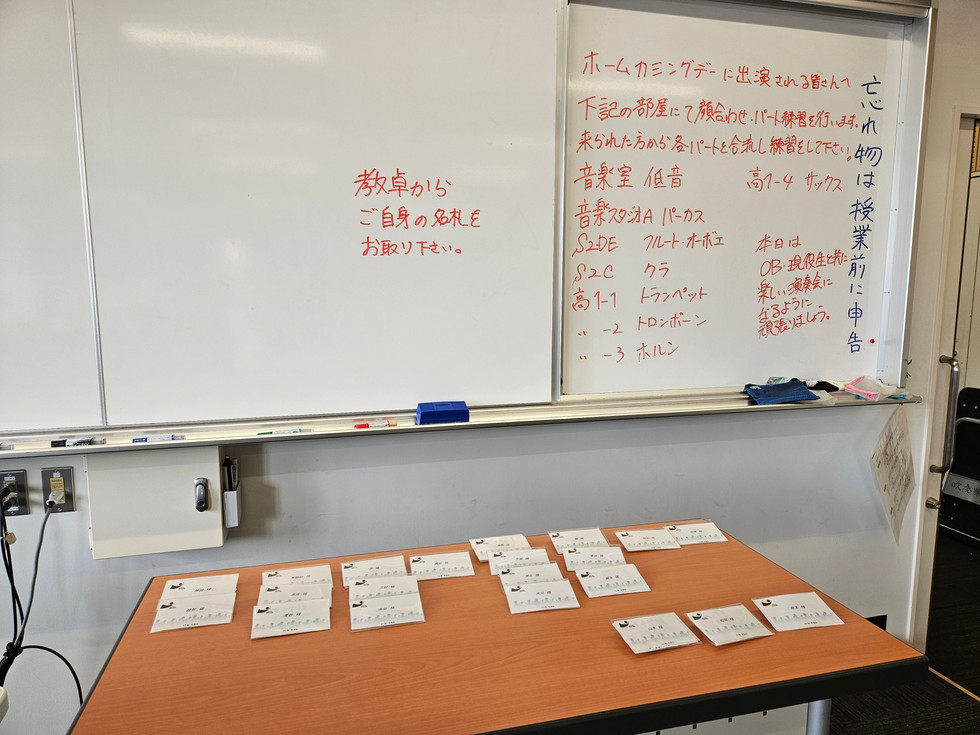 教卓から
ご自身の名札を
お取り下さい。
ホームカミングデーに出演される皆さんへ
下記の部屋にて顔合わせ・パート練習を行います。
来られた方から各パートと合流し練習をして下さい。
音楽室 低音
高1-4 サックス
音楽スタジオA パーカス
S2DE フルート・オーボエ
S2C クラ
高1-1 トランペット
〃 -2 トロンボーン
〃 -3 ホルン
本日は
OB・現役生と共に
楽しい演奏会に
なるように
頑張りましょう。
忘れ物は授業前に申告
吹奏